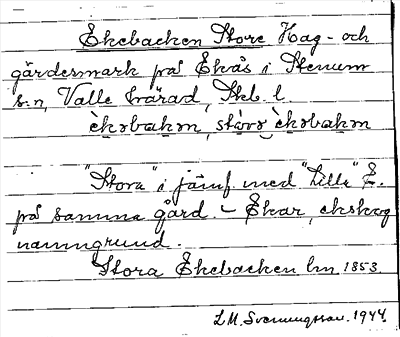 Ekebacken Store Hag- och
gärdesmark på Ekås i Stenum
s:n, Valle härad, Skb. l.
èkəbakən, stòrə èkəbakən
"Stora" i jämf. med "Lilla" E.
på samma gård – Ekar, ekskog
namngrund.
Stora Ekebacken lm 1853.
L.M. Svenungsson. 1944.